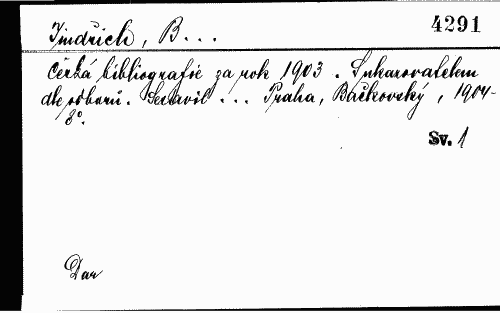 4291
Jindřich, B...
Česká bibliografie za rok 1903. S ukazovatelem
dle odborů. Sestavil ... Praha, Bačkovský, 1904-
8°.
Sv. 1
Dar